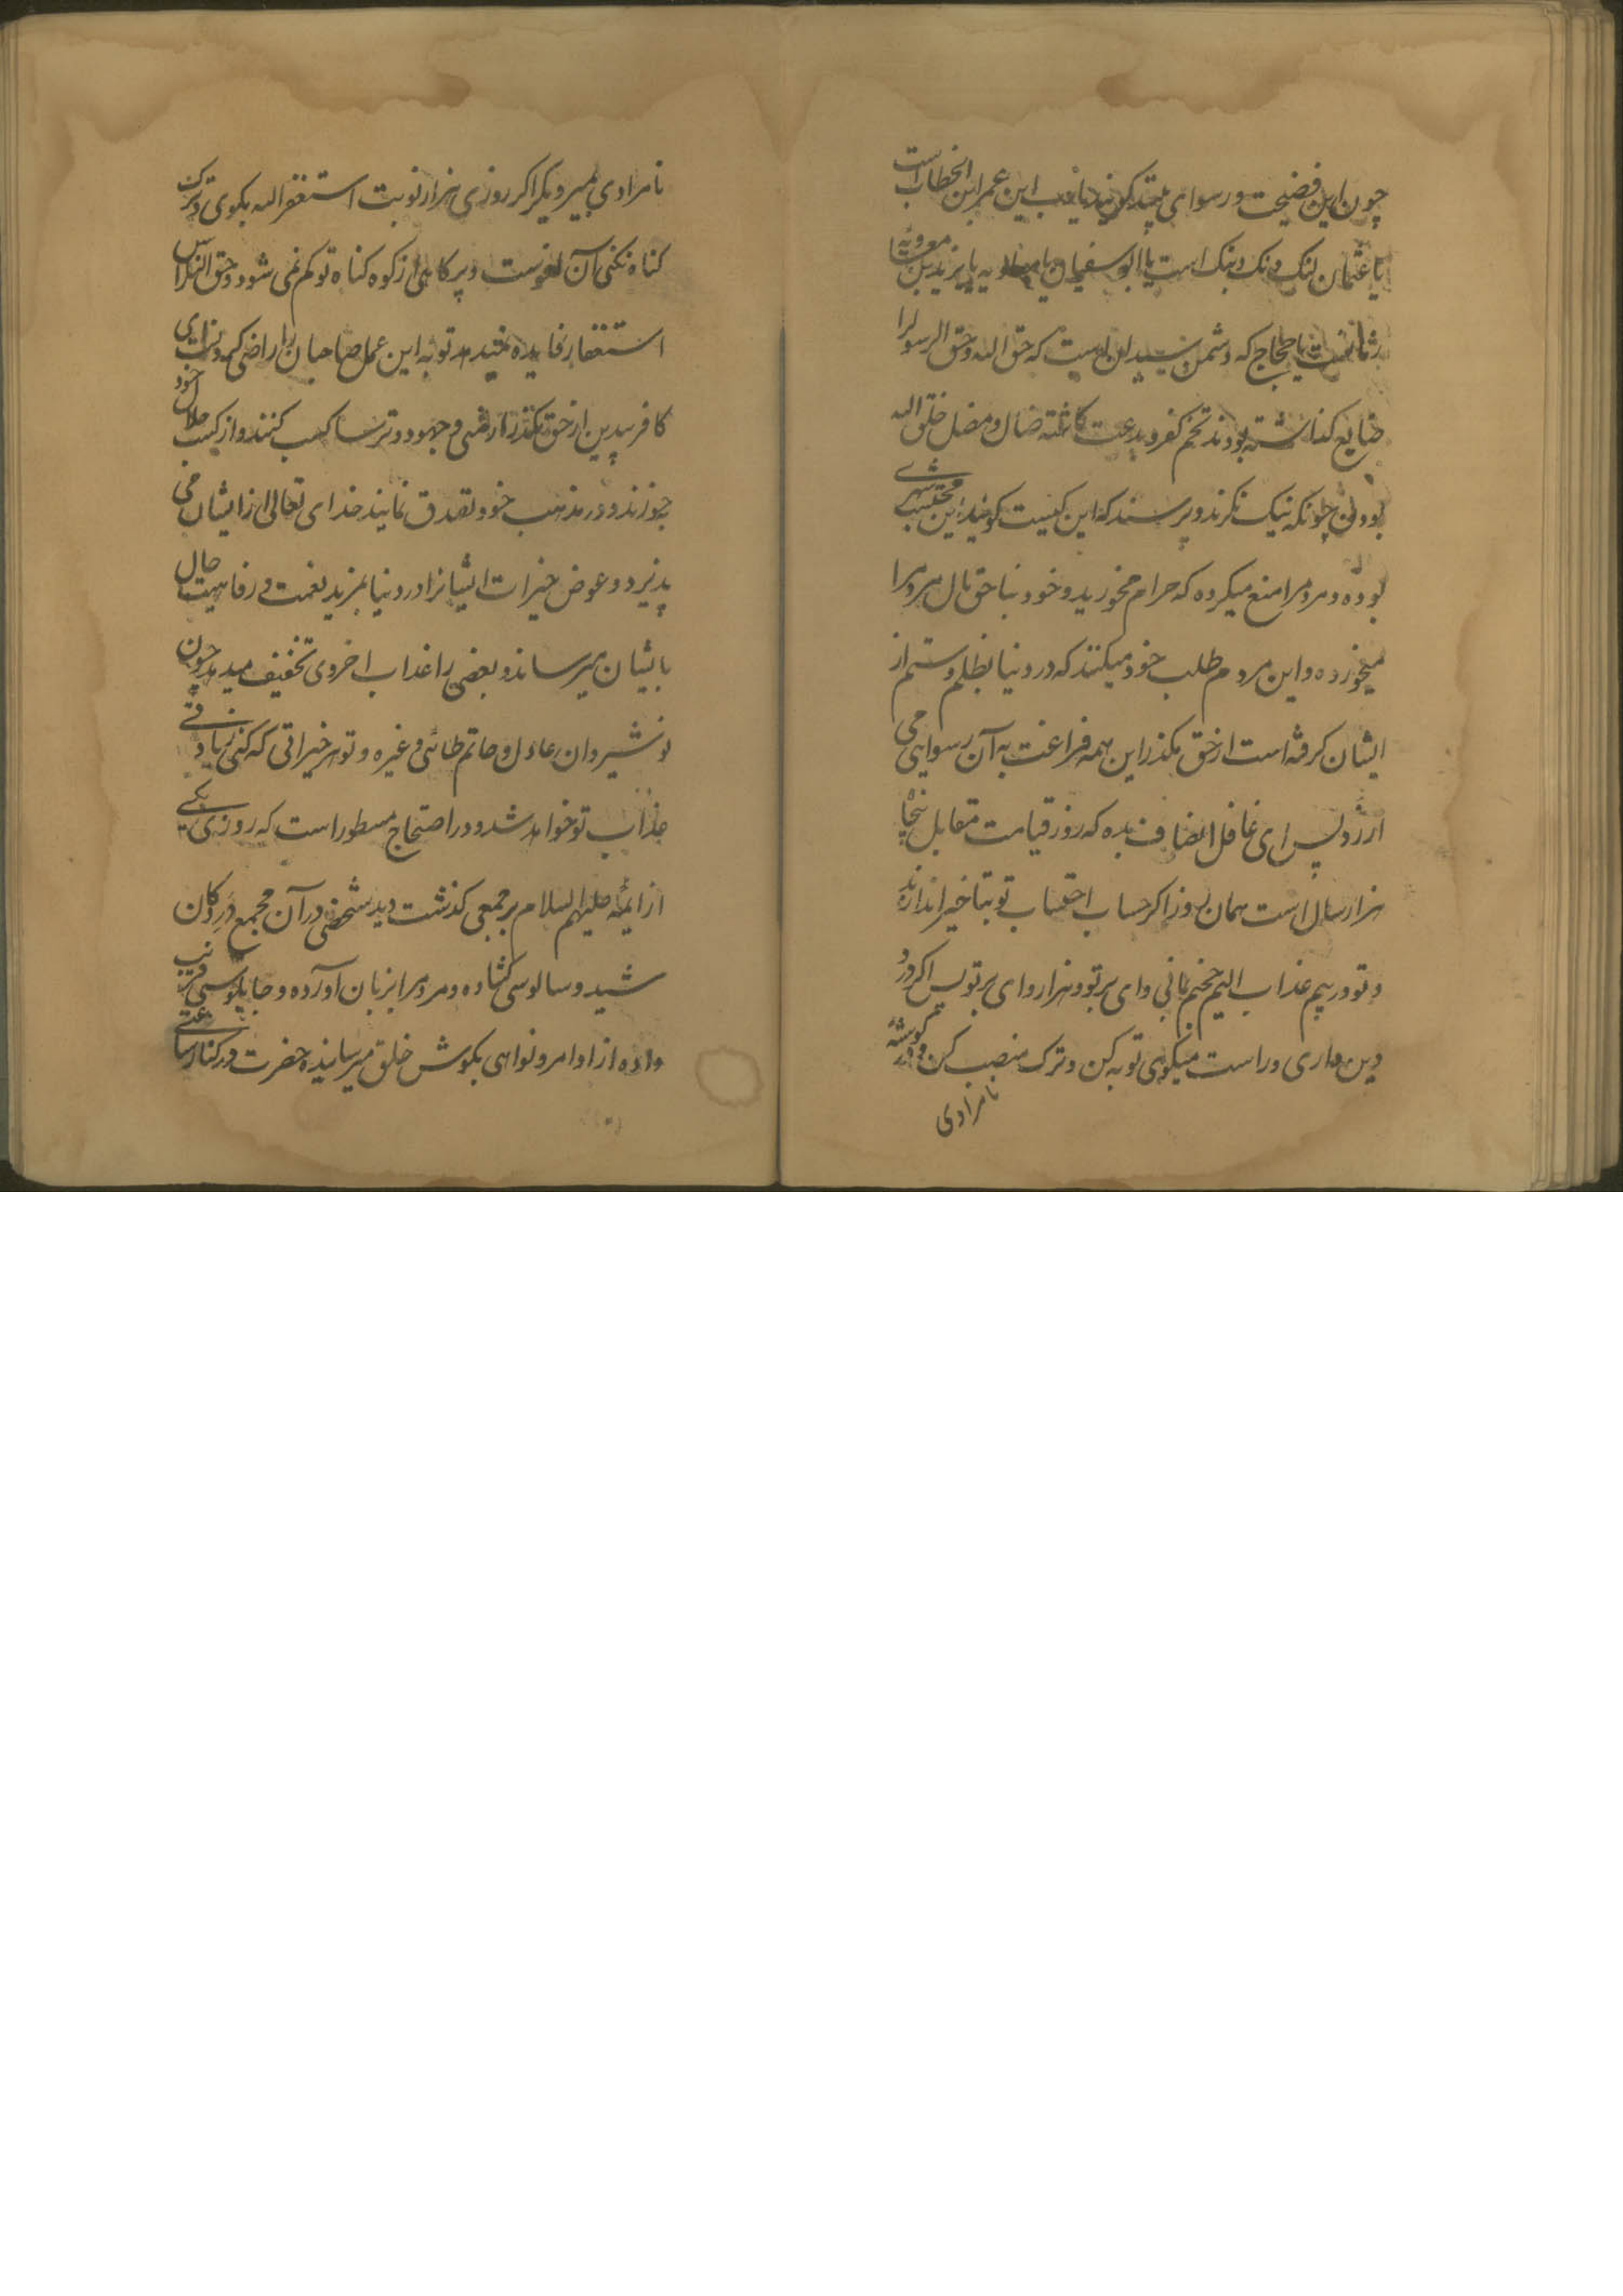 چون این فضیحت و رسوای بیند کویند یارب این عمر ابن الخطاب است
یا عثمان لنک دنک دبنک است یا ابو سفیان یا معاویه یا یزید بن معویه یا
یا حجاج که دشمن سیدان است که حق الله و حق الرسول را
ضایع کذاشته بودند تخم کفر و بدعت کاشته ضال و مضل خلق الله
بودن چونکه نیک نکرند و پرسند که این کیست کویند این محتسب شهری
بوده و مردمرا منع میکرده که حرام مخورید و خود بنا حق مال مردمرا
میخورده و این مردم طلب خود میکنند که در دنیا بظلم و ستم از
ایشان کرفته است از حق مکذر این همه فراغت به آن رسوایی می
ارزد پس ای غافل انصاف بده که روز قیامت مقابل پنجاه
هزار سال است همان روز اکر حساب احتساب تو بتاخیر اندازند
و تو در بیم عذاب الیم جحیم مانی وای بر تو و هزار وای بر تو پس اکر درد
دین داری و راست میکوی توبه کن و ترک منصب کن و در کوشهٔ
نامرادی
نامرادی بمیر و یکر اکر روزی هزار نوبت استغفر الله بکوی و ترک
کناه نکنی آن لغوست و پر کاهی از کوه کناه تو کم نمی شود و حق الناس را
استغفار فایده توبه این عمل صاحبان را راضی
کافر بیدین از حق مکذر ارمنی و جهود و ترسا کسب کنند و از کسب حلال خود
خورند و در مذهب خود تصدق نمایند خدای تعالی از ایشان می
پذیرد و عوض خیرات ایشانرا در دنیا بمزید نعمت و رفاهیت حال
بایشان میرساند و بعضی را عذاب اخروی تخفیف میدهد چون
نوشیروان عادل و حاتم طائی و غیره و تو هر خیراتی که کنی زیادتی
عذاب تو خواهد شد و در احتجاج مسطور است که روزی یکی
از ایمه علیهم السلام بر جمعی کذشت دید شخصی در آن مجمع در دکان
شید و سالوسی کشاده و مردمرا بزبان آورده و چاپلوسی فریب
داده از اوامر و نواهی بکوش خلق میرسانید حضرت در کنار ساعتی